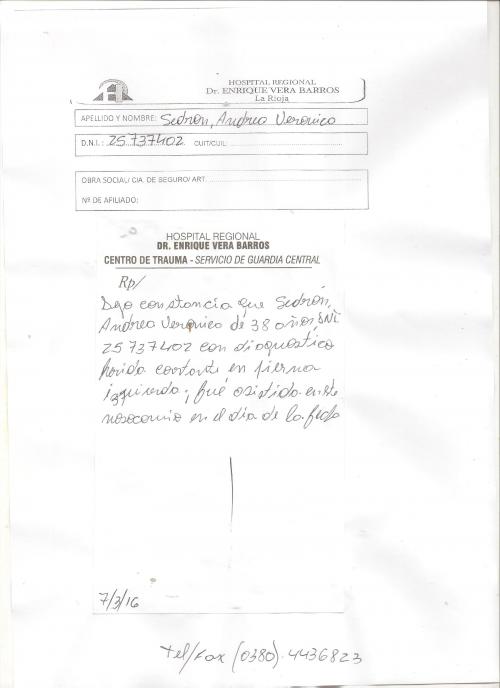 HOSPITAL REGIONAL
Dr. ENRIQUE VERA BARROS
La Rioja
APELLIDO Y NOMBRE: Sedrón, Andrea Veronica
D.N.I.: 25737402 CUIT/CUIL:
OBRA SOCIAL/ CIA. DE SEGURO/ ART.
Nº DE AFILIADO:
HOSPITAL REGIONAL
DR. ENRIQUE VERA BARROS
CENTRO DE TRAUMA - SERVICIO DE GUARDIA CENTRAL
Rp/
Dejo constancia que Sedrón,
Andrea Veronica de 38 años, DNI
25737402 con diagnostico
herida cortante en pierna
izquierda; fué asistida en este
nosocomio en el día de la fecha
7/3/16
Tel/Fax (0380) 4436823